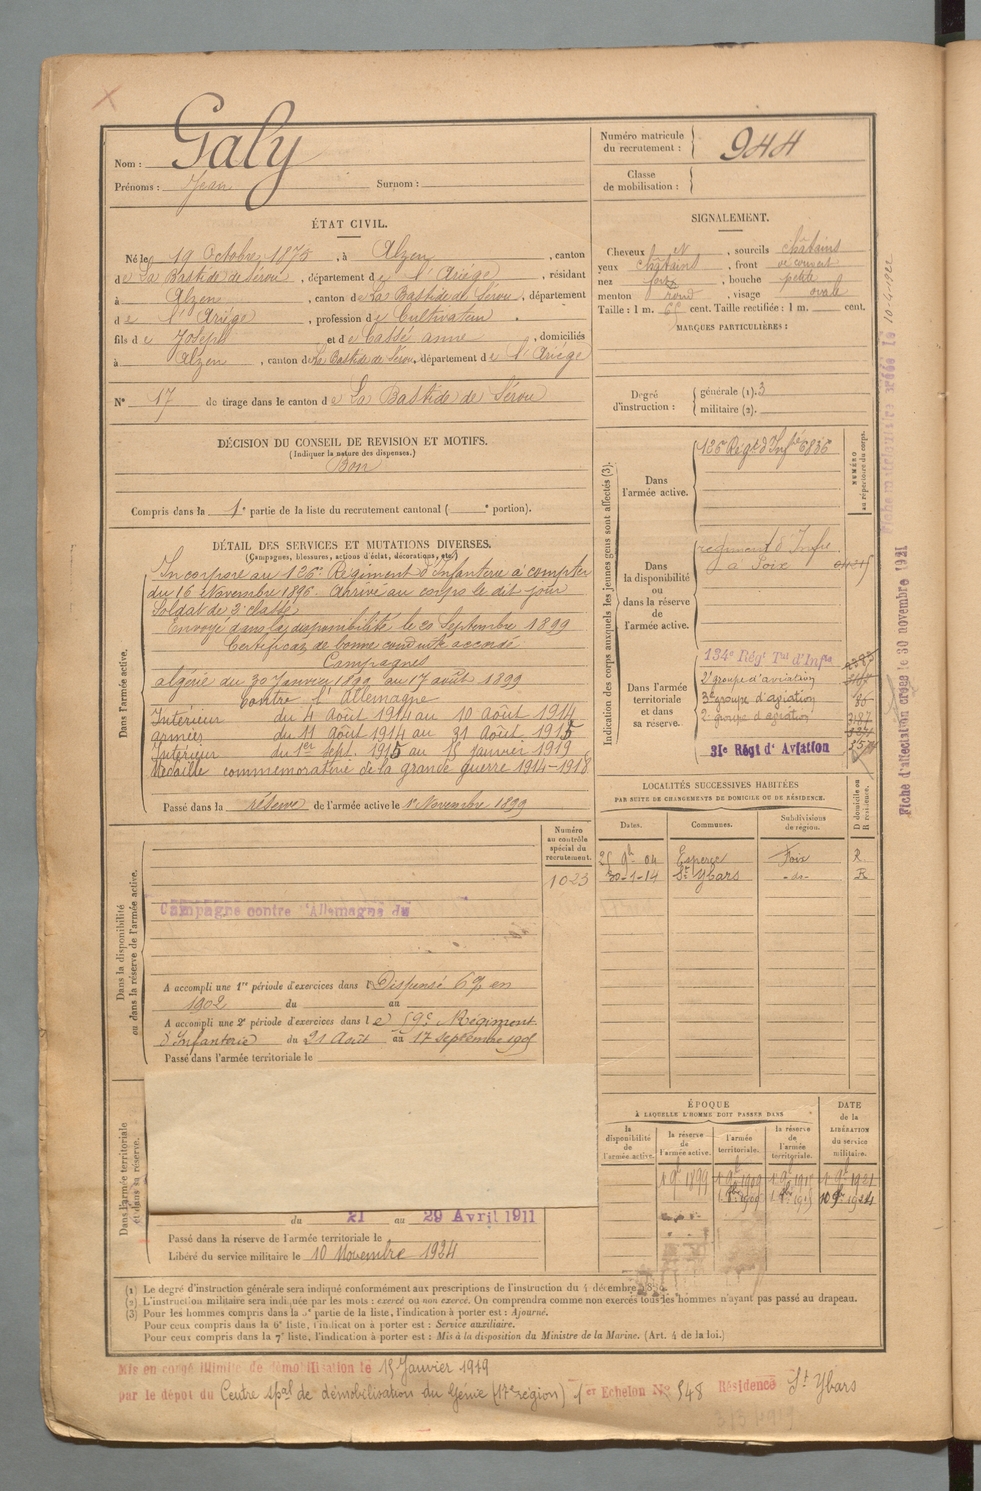 Nom : Galy
Prénoms : Jean Surnom :
Numéro matricule du recrutement : 944
Classe de mobilisation :
ÉTAT CIVIL.
Né le 19 Octobre 1875, à Alzen, canton
de La Bastide de Sérou, département de l'Ariège, résidant
à Alzen, canton de La Bastide de Sérou, département
de l'Ariège, profession de Cultivateur.
fils de Joseph et de Cassé anne, domiciliés
à Alzen, canton de La Bastide de Sérou, département de l'Ariège
N° 17 de tirage dans le canton de La Bastide de Sérou
DÉCISION DU CONSEIL DE REVISION ET MOTIFS.
(Indiquer la nature des dispenses.)
Bon
Compris dans la 1e partie de la liste du recrutement cantonal ( e portion).
DÉTAIL DES SERVICES ET MUTATIONS DIVERSES.
(Campagnes, blessures, actions d'éclat, décorations, etc.)
Dans l'armée active.
Incorporé au 126e Régiment d'Infanterie à compter
du 16 Novembre 1896. Arrivé au corps le dit jour
Soldat de 2e classe
Envoyé dans la disponibilité le 20 Septembre 1899
Certificat de bonne conduite accordé
Campagnes
algérie du 30 Janvier 1899 au 17 août 1899
contre l'Allemagne
Intérieur du 4 Août 1914 au 10 Août 1914
armées du 11 août 1914 au 31 Août 1915
Intérieur du 1er sept. 1915 au 15 janvier 1919
Médaille commemorative de la grande guerre 1914-1918
Passé dans la réserve de l'armée active le 1er Novembre 1899
Dans la disponibilité ou dans la réserve de l'armée active.
Numéro au contrôle spécial du recrutement.
1023
Campagne contre l'Allemagne du
A accompli une 1re période d'exercices dans l Dispensé en
1902 du au
A accompli une 2e période d'exercices dans le 59e Régiment
d'Infanterie du 21 Août au 17 septembre 1905
Passé dans l'armée territoriale le
Dans l'armée territoriale et dans sa réserve.
du 21 au 29 Avril 1911
Passé dans la réserve de l'armée territoriale le
Libéré du service militaire le 10 Novembre 1924
SIGNALEMENT.
Cheveux N, sourcils châtains
yeux châtains, front découvert
nez, bouche petite
menton rond, visage ovale
Taille : 1 m. 65 cent. Taille rectifiée : 1 m. cent.
MARQUES PARTICULIÈRES :
Degré d'instruction : générale (1). 3
militaire (2).
Indication des corps auxquels les jeunes gens sont affectés (3).
NUMÉRO au répertoire du corps.
Dans l'armée active.
126e Régt d'Infie 6836
Dans la disponibilité ou dans la réserve de l'armée active.
regiment d'Infie
à Foix
Dans l'armée territoriale et dans sa réserve.
134e Régt Tal d'Infie
2e groupe d'aviation
3e groupe d'aviation
2e groupe d'aviation
31e Régt d'Aviation
LOCALITÉS SUCCESSIVES HABITÉES
PAR SUITE DE CHANGEMENTS DE DOMICILE OU DE RÉSIDENCE.
Dates. Communes. Subdivisions de région. D domicile ou R résidence.
25 9b 04 Esperce Foix R.
30-1-14 St Ybars -do- R
ÉPOQUE
À LAQUELLE L'HOMME DOIT PASSER DANS
la disponibilité de l'armée active. la réserve de l'armée active. l'armée territoriale. la réserve de l'armée territoriale. DATE de la LIBÉRATION du service militaire.
1 9b 1899 1 9b 1909 1 9b 1915 1 9b 1921
10 9b 1924
(1) Le degré d'instruction générale sera indiqué conformément aux prescriptions de l'instruction du 4 décembre
(2) L'instruction militaire sera indiquée par les mots : exercé ou non exercé. On comprendra comme non exercés tous les hommes n'ayant pas passé au drapeau.
(3) Pour les hommes compris dans la 5e partie de la liste, l'indication à porter est : Ajourné.
Pour ceux compris dans la 6e liste, l'indication à porter est : Service auxiliaire.
Pour ceux compris dans la 7e liste, l'indication à porter est : Mis à la disposition du Ministre de la Marine. (Art. 4 de la loi.)
Mis en congé illimité de démobilisation le 15 Janvier 1919
par le dépôt du Centre spal de démobilisation du Génie (17e région) 1er Echelon No 548 Résidence St Ybars
Fiche d'affectation créée le 30 novembre 1921
Fiche matriculaire créée le 10-4-1922